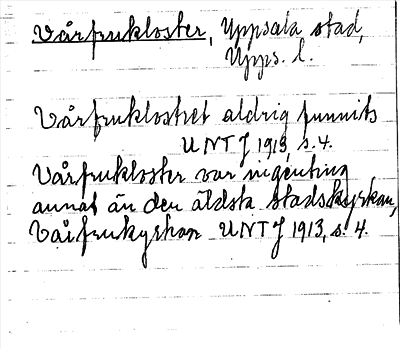 Vårfrukloster, Uppsala stad,
Upps. l.
Vårfruklostret aldrig funnits
UNTJ 1913, s. 4.
Vårfrukloster var ingenting
annat än den äldsta stadskyrkan,
Vårfrukyrkan UNTJ 1913, s. 4.